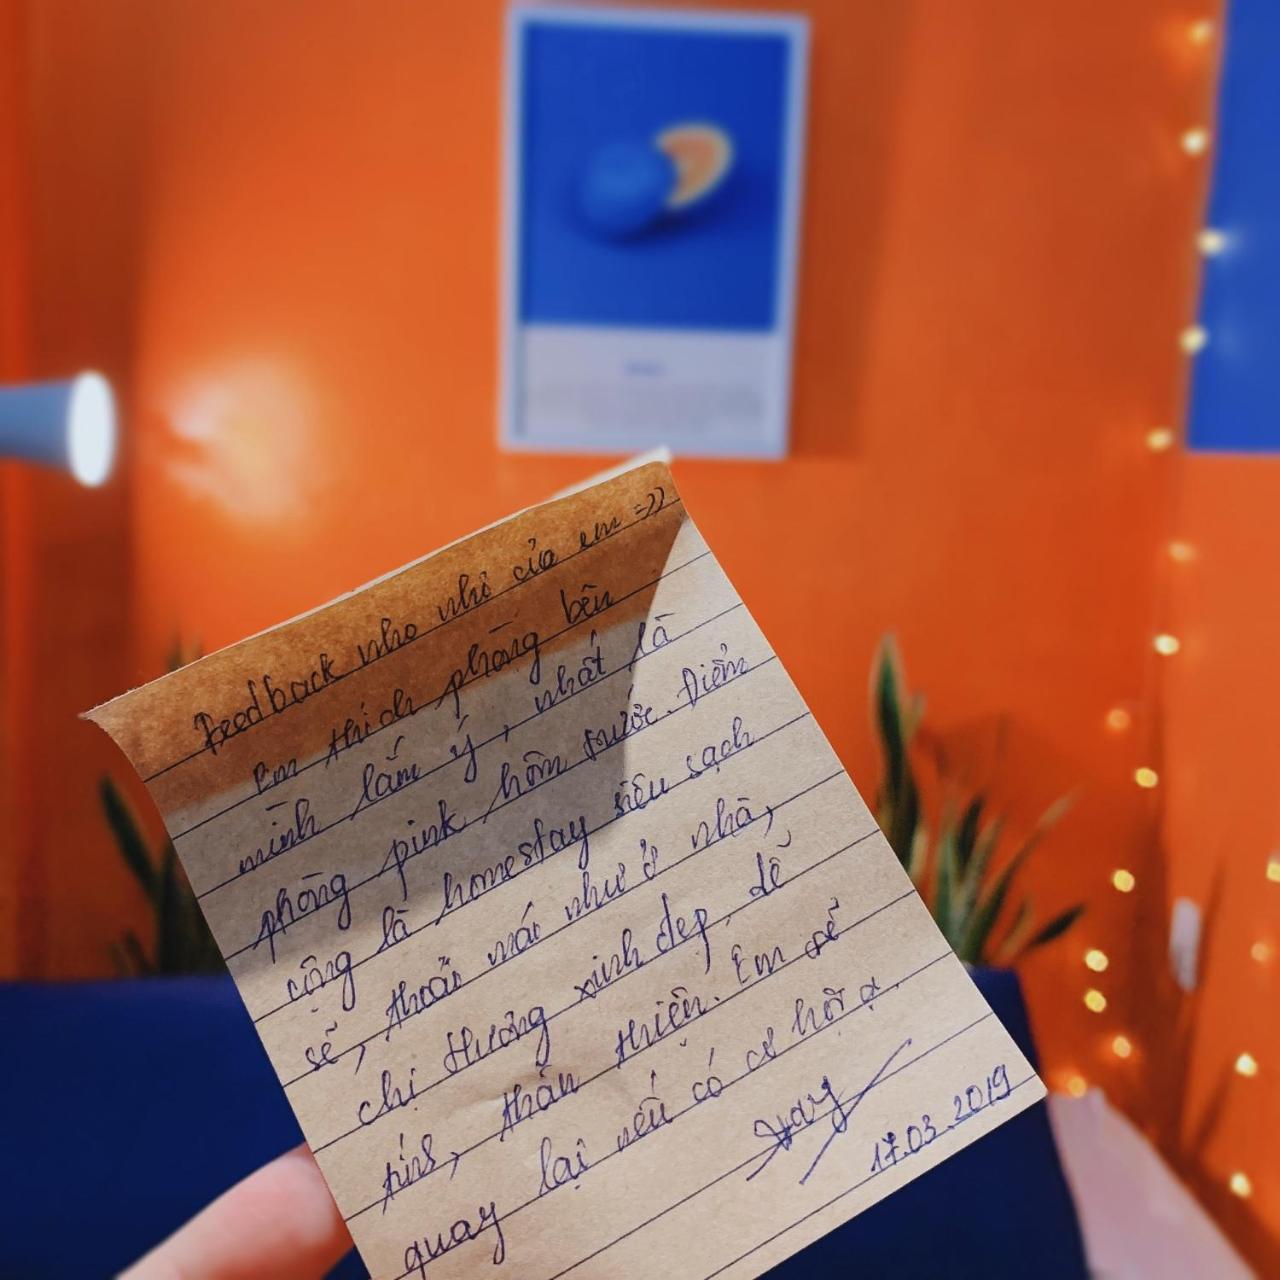 Feedback nho nhỏ của em =))
Em thích phòng bên
mình lắm ý, nhất là
phòng pink hôm trước. Điểm
cộng là homestay siêu sạch
sẽ, thoải mái như ở nhà,
chị Hương xinh đẹp, dễ
tính, thân thiện. Em sẽ
quay lại nếu có cơ hội ạ.
17.03.2019